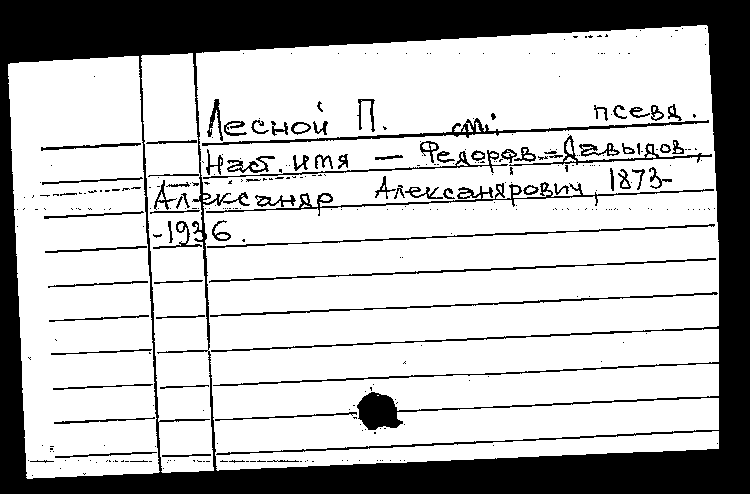 Лесной П. ст. псевд.
Наст. имя — Федоров-Давыдов,
Александр Александрович, 1873-
-1936.